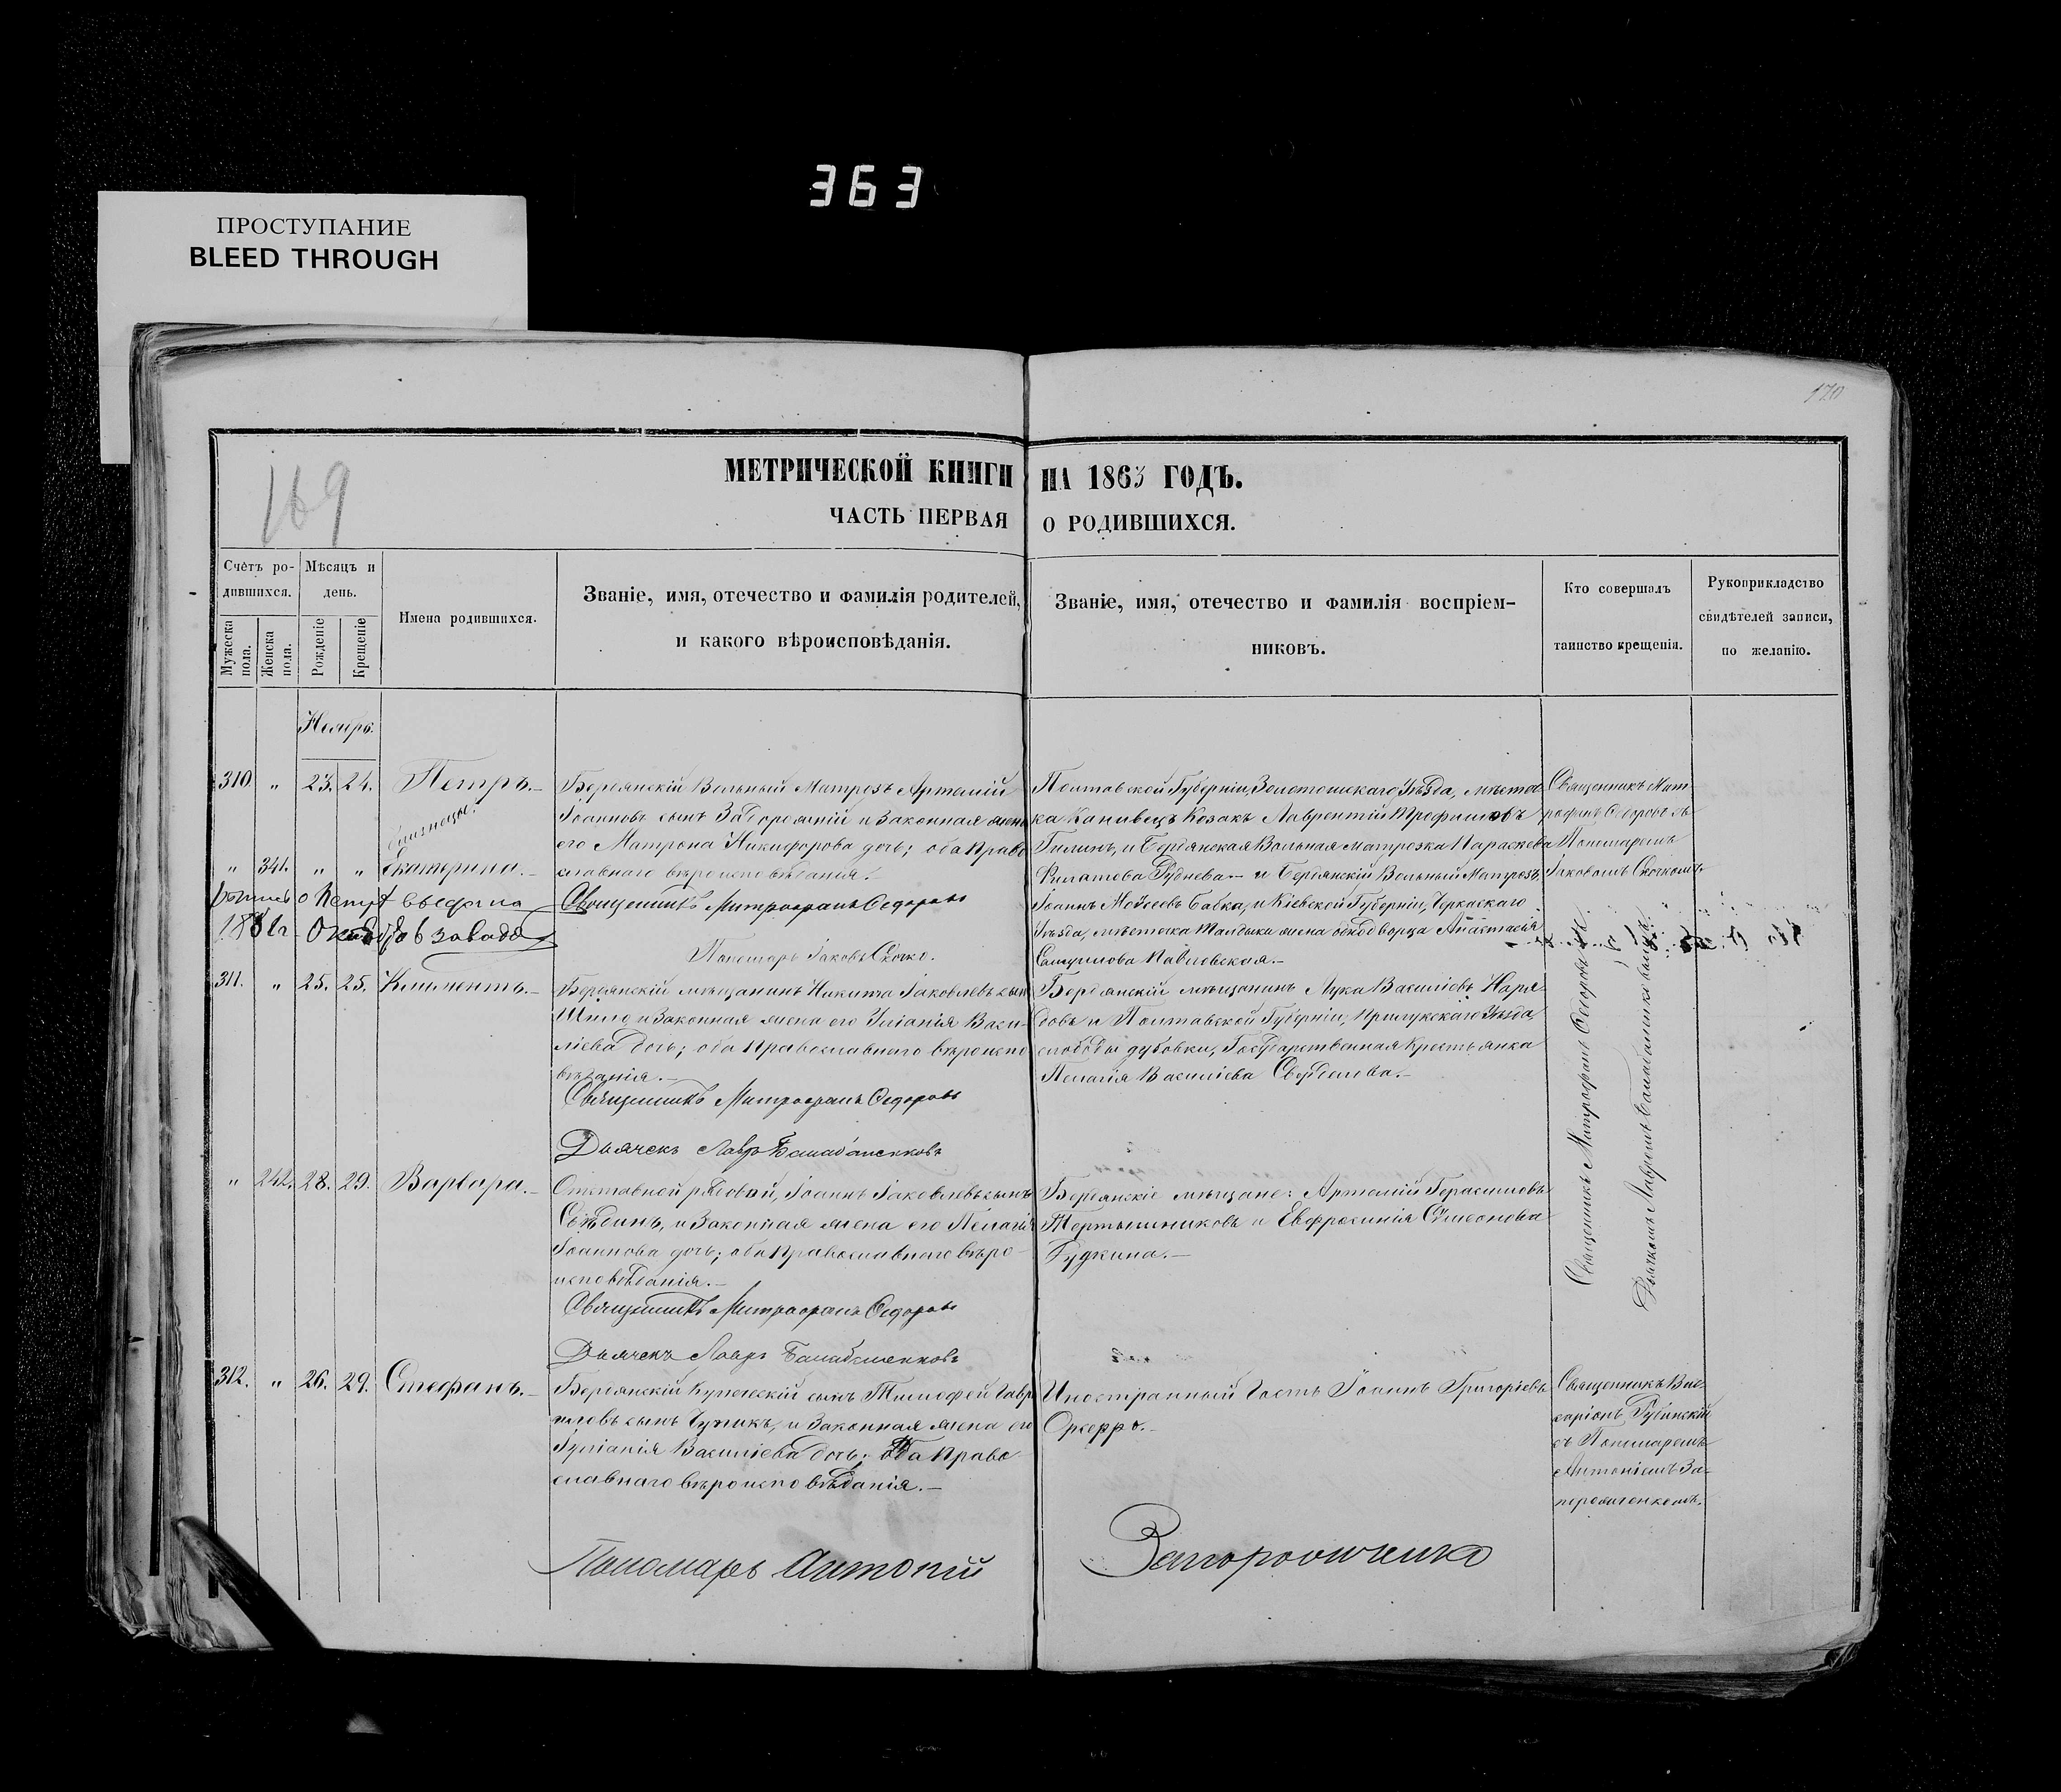 363
ПРОСТУПАНИЕ
BLEED THROUGH
170
169
МЕТРИЧЕСКОЙ КНИГИ НА 1863 ГОДЪ.
ЧАСТЬ ПЕРВАЯ О РОДИВШИХСЯ.
Счетъ родившихся.
Мужеска пола.
Женска пола.
Мѣсяцъ и день.
Рожденіе
Крещеніе
Имена родившихся.
Званіе, имя, отечество и фамилія родителей,
и какого вѣроисповѣданія.
Званіе, имя, отечество и фамилія воспріем-
никовъ.
Кто совершалъ
таинство крещенія.
Рукоприкладство
свидѣтелей записи,
по желанію.
Ноябрь.
310 " 23. 24. Петръ.
близнецы.
" 341. " " Екатерина.
Бердянскій Вольный Матрозъ Артемій
Іоанновъ сынъ Забороxній и Законная жена
его Матрона Никифорова дочь; оба Право
славнаго вѣроисповѣданія.
Священникъ Митрофанъ Федоровъ
Пономарь Іаковъ
Полтавской Губерніи, Золотоношскаго Уѣзда, мѣстеч
ка Канивецъ Козакъ Лаврентій Трофимовъ
и Бердянская Вольная матрозка Параскева
Руднева и Бердянскій Вольный Матрозъ
Іоаннъ Моѵсеевъ Бавка, и Кіевской Губерніи, Черкаскаго
Уѣзда, мѣстечка жена однодворца Анастасія
Самуилова Павловская.
Священникъ Мит
рофанъ Федоровъ съ
Пономаремъ
Іаковомъ
о Петрѣ выдана
311. " 25. 25. Климентъ.
Бердянскій мѣщанинъ Никита Іаковлевъ сынъ
Шило, и Законная жена его Уліанія Васи-
ліева дочь; оба Православнаго вѣроиспо
вѣданія.
Священникъ Митрофанъ Федоровъ
Дьячекъ Лавръ Балабаненковъ
Бердянскій мѣщанинъ Лука Василіевъ Наря
довъ и Полтавской Губерніи, Прилукскаго Уѣзда,
слободы дубовки, Государственная Крестьянка
Пелагія Василіева
Священникъ Митрофанъ Федоровъ съ
Дьячкомъ Лавромъ Балабаненковымъ.
" 242. 28. 29. Варвара.
Отставной рядовой, Іоаннъ Іаковлевъ сынъ
и Законная жена его Пелагія
Іоаннова дочь; оба Православнаго вѣро
исповѣданія.
Священникъ Митрофанъ Федоровъ
Дьячекъ Лавръ Балабаненковъ
Бердянскіе мѣщане: Артемій Герасимовъ
Тертышниковъ и Евфросинія Сѵмеонова
Гудкина.
312. " 26. 29. Стефанъ.
Бердянскій Купеческій сынъ Тимофей Гавр
иловъ сынъ и Законная жена его
Іуліанія Василіева дочь; Оба Право
славнаго вѣроисповѣданія.
Иностранный Гость Іоаннъ Григоріевъ
Священникъ Вис-
саріонъ
съ Пономаремъ
Антоніемъ За-
порожченкомъ.
Пономарь Антоній Запорожченко